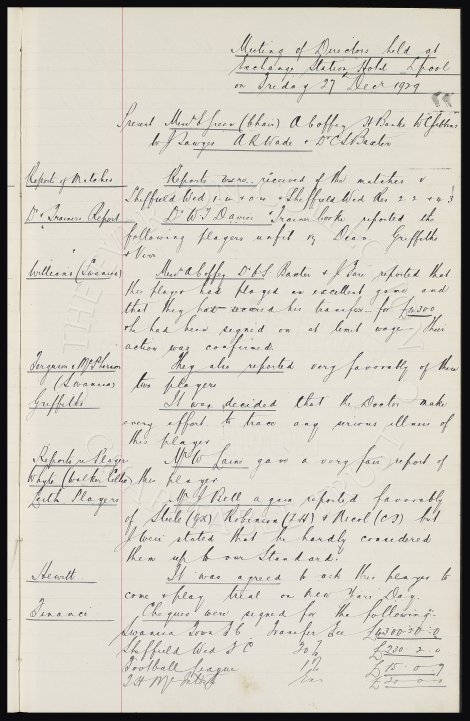 Meeting of Directors held at
Exchange Station Hotel L'pool
on Friday 27 Decr 1929
Present Messrs E Green (Chair) A Coffey H Banks W C Gibbins
W J Sawyer A R Wade & Dr C S Baxter
Report of Matches Reports were received of the matches v
Sheffield Wed 1. 4 & 0 4 & Sheffield Wed Res 2 2 & 4 3
Dr & Trainers Report Dr W J Davies & Trainer Cooke reported the
following players unfit viz Dean Griffiths
&
Williams (Swansea) Messrs A Coffey Dr C S Baxter & J reported that
this player had played an excellent game and
that they had secured his transfer for £4300
& he had been signed on at limit wage Their
action was confirmed.
Ferguson & McPherson They also reported very favorably of these
(Swansea) two players
Griffiths It was decided that the Doctor make
every effort to trace any serious illness of
this player
Reports re Player Mr W gave a very fair report of
Whyte (Walker Celtic) this player
Leith Players Mr J Bell again reported favorably
of Steele (GK) Robinson & Nicol but
J Weir stated that he hardly considered
them up to our Standard.
Hewitt It was agreed to ask this player to
come & play trial on New Years Day.
Finance Cheques were signed for the following:-
Swansea Town F C Transfer Fee £4300 - 0 - 0
Sheffield Wed F C £230 2 0
Football League £15 0 9
£20 0 0